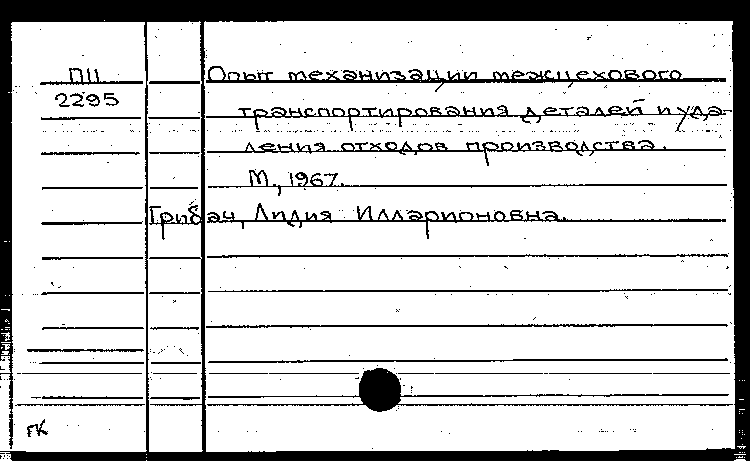 П11 Опыт механизации межцехового
2295 транспортирования деталей и уда-
ления отходов производства.
М., 1967.
Грибач, Лидия Илларионовна.
ГК